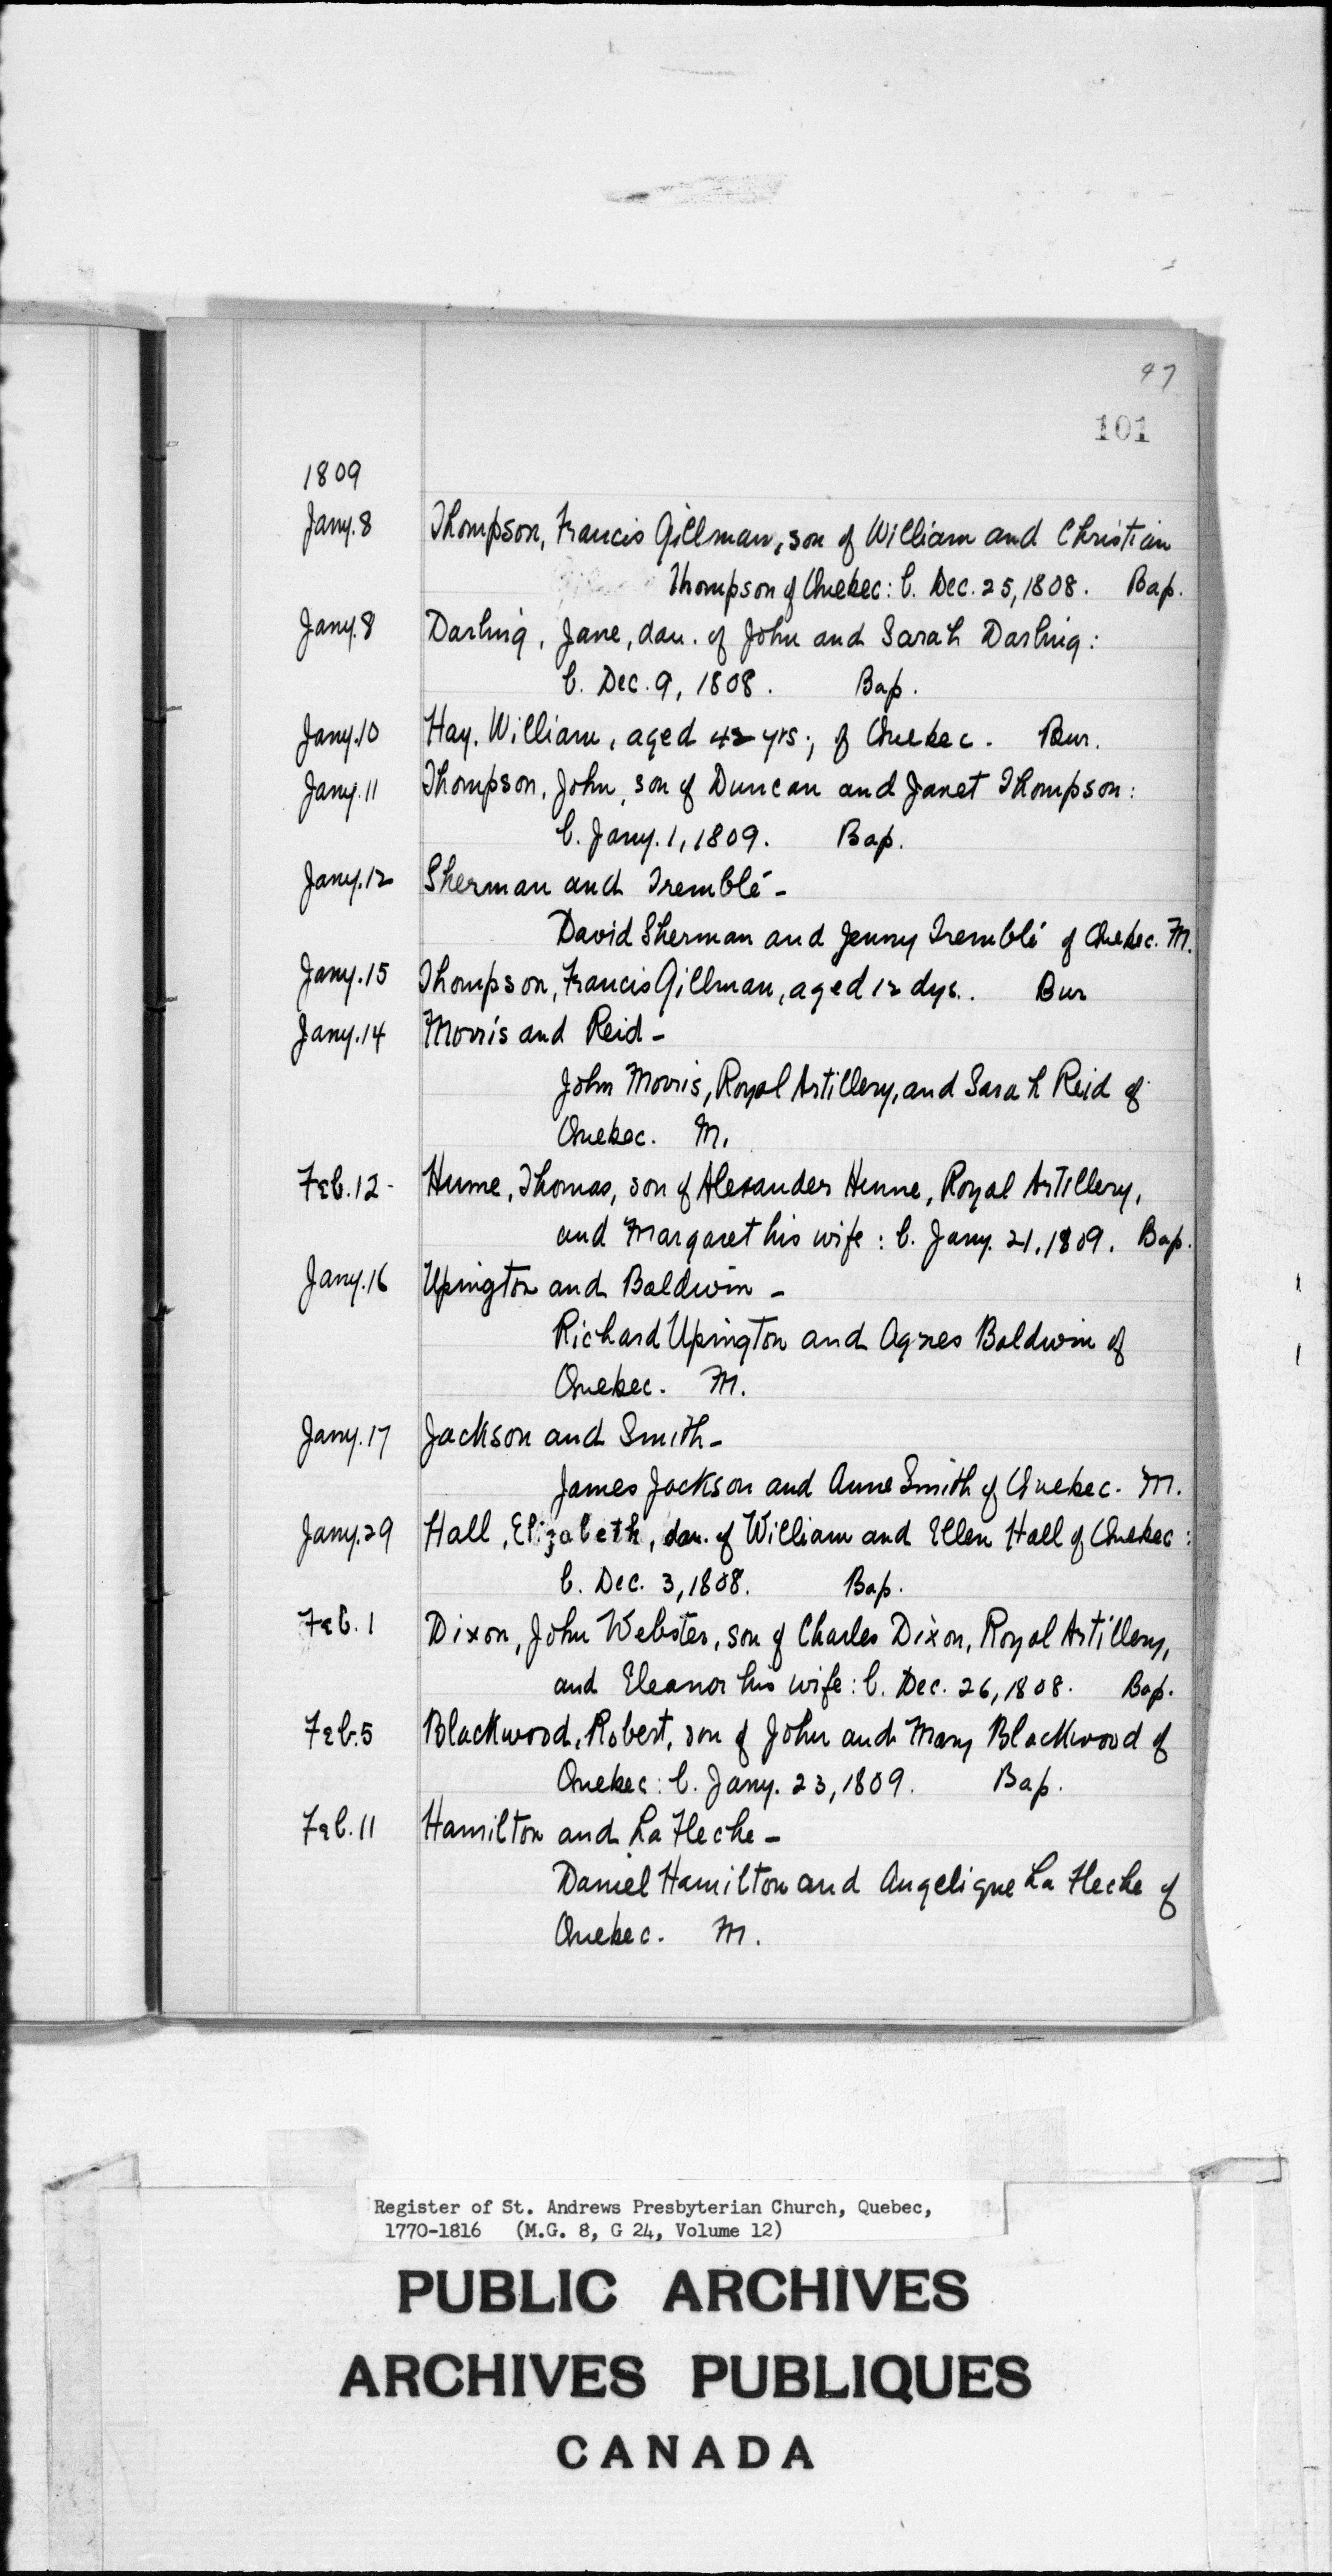 97
101
1809
Jany. 8 Thompson, Francis Gillman, son of William and Christian
Thompson of Quebec: b. Dec. 25, 1808. Bap.
Jany. 8 Darling, Jane, dau. of John and Sarah Darling:
b. Dec. 9, 1808. Bap.
Jany. 10 Hay, William, aged 42 yrs., of Quebec. Bur.
Jany. 11 Thompson, John, son of Duncan and Janet Thompson:
b. Jany. 1, 1809. Bap.
Jany. 12 Sherman and Tremblé -
David Sherman and Jenny Tremblé of Quebec. M.
Jany. 15 Thompson, Francis Gillman, aged 12 dys. Bur
Jany. 14 Morris and Reid -
John Morris, Royal Artillery, and Sarah Reid of
Quebec. M.
Feb. 12 - Hume, Thomas, son of Alexander Hume, Royal Artillery,
and Margaret his wife: b. Jany. 21, 1809. Bap.
Jany. 16 Upington and Baldwin -
Richard Upington and Agnes Baldwin of
Quebec. M.
Jany. 17 Jackson and Smith -
James Jackson and Anne Smith of Quebec. M.
Jany. 29 Hall, Elizabeth, dau. of William and Ellen Hall of Quebec:
b. Dec. 3, 1808. Bap.
Feb. 1 Dixon, John Webster, son of Charles Dixon, Royal Artillery,
and Eleanor his wife: b. Dec. 26, 1808. Bap.
Feb. 5 Blackwood, Robert, son of John and Mary Blackwood of
Quebec: b. Jany. 23, 1809. Bap.
Feb. 11 Hamilton and La Fleche -
Daniel Hamilton and Angelique La Fleche of
Quebec. M.
Register of St. Andrews Presbyterian Church, Quebec,
1770-1816 (M.G. 8, G 24, Volume 12)
PUBLIC ARCHIVES
ARCHIVES PUBLIQUES
CANADA